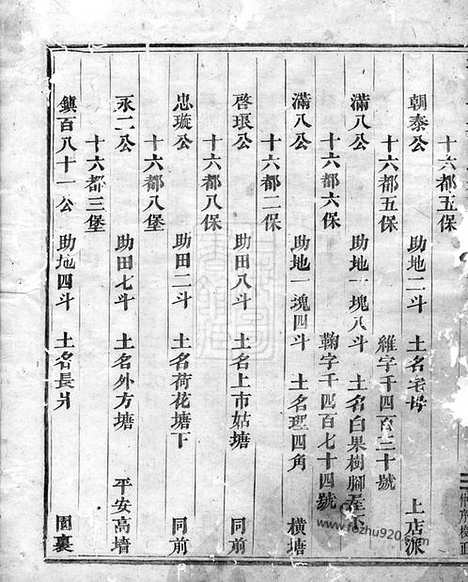 十六都五保
朝泰公 助地二斗 土名 上店派
十六都五保 維字千四百三十號
滿八公 助地一塊八斗 土名白果樹腳
十六都六保 鞠字千四百七十四號
滿八公 助地一塊四斗 土名理四角 橫塘
十六都二保
啓琅公 助田八斗 土名上市姑塘
十六都八保
忠璇公 助田二斗 土名荷花塘下 同前
十六都八堡
永二公 助田七斗 土名外方塘 平安高墻
十六都三堡
鎮百八十一公 助地四斗 土名長 園裏